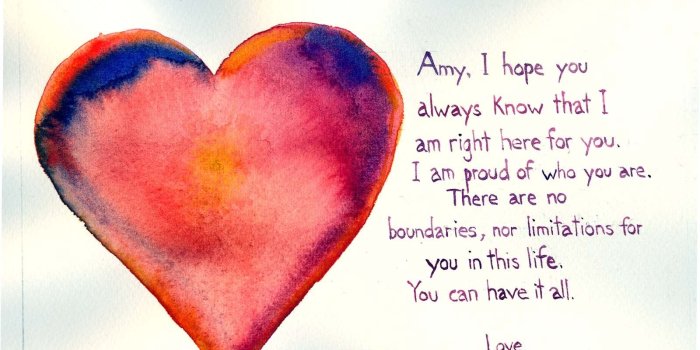 Amy, I hope you
always know that I
am right here for you.
I am proud of who you are.
There are no
boundaries, nor limitations for
you in this life.
You can have it all.
Love